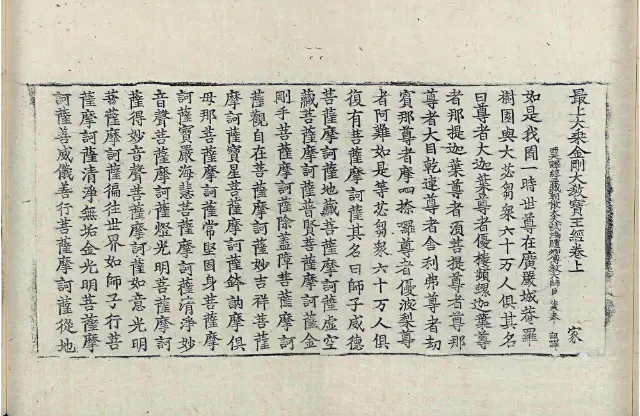 最上大乘金剛大教寶王經卷上 家
西天譯經三藏朝散大夫試鴻臚卿傳教大師臣法天奉 詔譯
如是我聞一時世尊在廣嚴城菴羅
樹園與大苾芻衆六十万人俱其名
曰尊者大迦葉尊者優樓頻螺迦葉尊
者那提迦葉尊者須菩提尊者尊那
尊者大目乾連尊者舍利弗尊者劫
賓那尊者摩㖿捺囉尊者優波梨尊
者阿難如是等苾芻衆六十万人俱
復有菩薩摩訶薩其名曰師子威德
菩薩摩訶薩地藏菩薩摩訶薩虛空
藏菩薩摩訶薩普賢菩薩摩訶薩金
剛手菩薩摩訶薩除蓋障菩薩摩訶
薩觀自在菩薩摩訶薩妙吉祥菩薩
摩訶薩寶星菩薩摩訶薩鉢訥摩俱
母那菩薩摩訶薩常堅固身菩薩摩
訶薩寶嚴海慧菩薩摩訶薩清淨妙
音聲菩薩摩訶薩燈光明菩薩摩訶
薩得妙音聲菩薩摩訶薩如意光明
菩薩摩訶薩徧往世界如師子行菩
薩摩訶薩清淨無垢金光明菩薩摩
訶薩善威儀善行菩薩摩訶薩從地